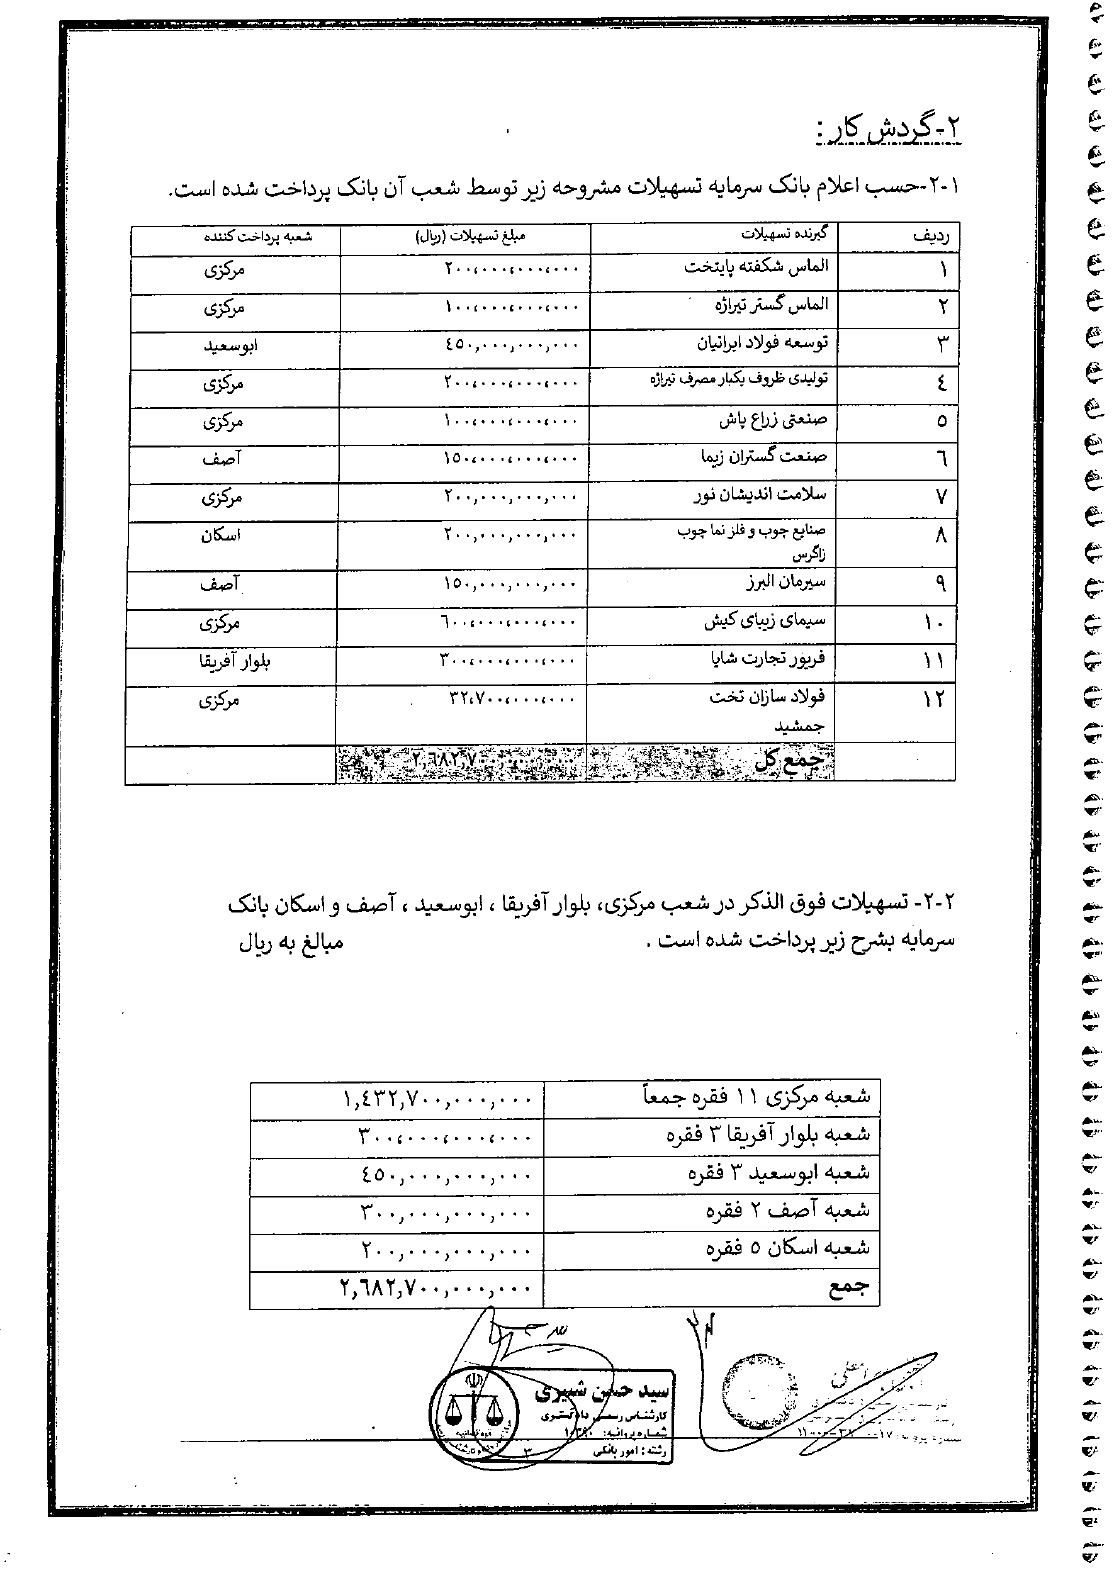 ۲-گردش کار :
۲-۱-حسب اعلام بانک سرمایه تسهیلات مشروحه زیر توسط شعب آن بانک پرداخت شده است.
ردیف گیرنده تسهیلات مبلغ تسهیلات (ریال) شعبه پرداخت کننده
۱ الماس شکفته پایتخت ۲۰۰،۰۰۰،۰۰۰،۰۰۰ مرکزی
۲ الماس گستر تیراژه ۱۰۰،۰۰۰،۰۰۰،۰۰۰ مرکزی
۳ توسعه فولاد ایرانیان ٤٥٠,۰۰۰,۰۰۰,۰۰۰ ابوسعید
٤ تولیدی ظروف یکبار مصرف تیراژه ۲۰۰،۰۰۰،۰۰۰،۰۰۰ مرکزی
٥ صنعتی زراع پاش ۱۰۰،۰۰۰،۰۰۰،۰۰۰ مرکزی
٦ صنعت گستران زیما ۱٥۰،۰۰۰،۰۰۰،۰۰۰ آصف
۷ سلامت اندیشان نور ۲۰۰,۰۰۰,۰۰۰,۰۰۰ مرکزی
۸ صنایع چوب و فلز نما چوب ۲۰۰,۰۰۰,۰۰۰,۰۰۰ اسکان
زاگرس
۹ سیرمان البرز ۱٥۰,۰۰۰,۰۰۰,۰۰۰ آصف
۱۰ سیمای زیبای کیش ٦۰۰،۰۰۰،۰۰۰،۰۰۰ مرکزی
۱۱ فریور تجارت شایا ۳۰۰،۰۰۰،۰۰۰،۰۰۰ بلوار آفریقا
۱۲ فولاد سازان تخت ۳۲،۷۰۰،۰۰۰،۰۰۰ مرکزی
جمشید
جمع کل ۲,٦۸۲,۷۰۰,۰۰۰,۰۰۰
۲-۲- تسهیلات فوق الذکر در شعب مرکزی، بلوار آفریقا ، ابوسعید ، آصف و اسکان بانک
سرمایه بشرح زیر پرداخت شده است . مبالغ به ریال
شعبه مرکزی ۱۱ فقره جمعاً ۱,٤۳۲,۷۰۰,۰۰۰,۰۰۰
شعبه بلوار آفریقا ۳ فقره ۳۰۰،۰۰۰،۰۰۰،۰۰۰
شعبه ابوسعید ۳ فقره ٤٥۰,۰۰۰,۰۰۰,۰۰۰
شعبه آصف ۲ فقره ۳۰۰,۰۰۰,۰۰۰,۰۰۰
شعبه اسکان ٥ فقره ۲۰۰,۰۰۰,۰۰۰,۰۰۰
جمع ۲,٦۸۲,۷۰۰,۰۰۰,۰۰۰
سید حسن شبیری
کارشناس رسمی دادگستری
شماره پروانه: ۱۰۳۹۰
رشته : امور بانکی
۳